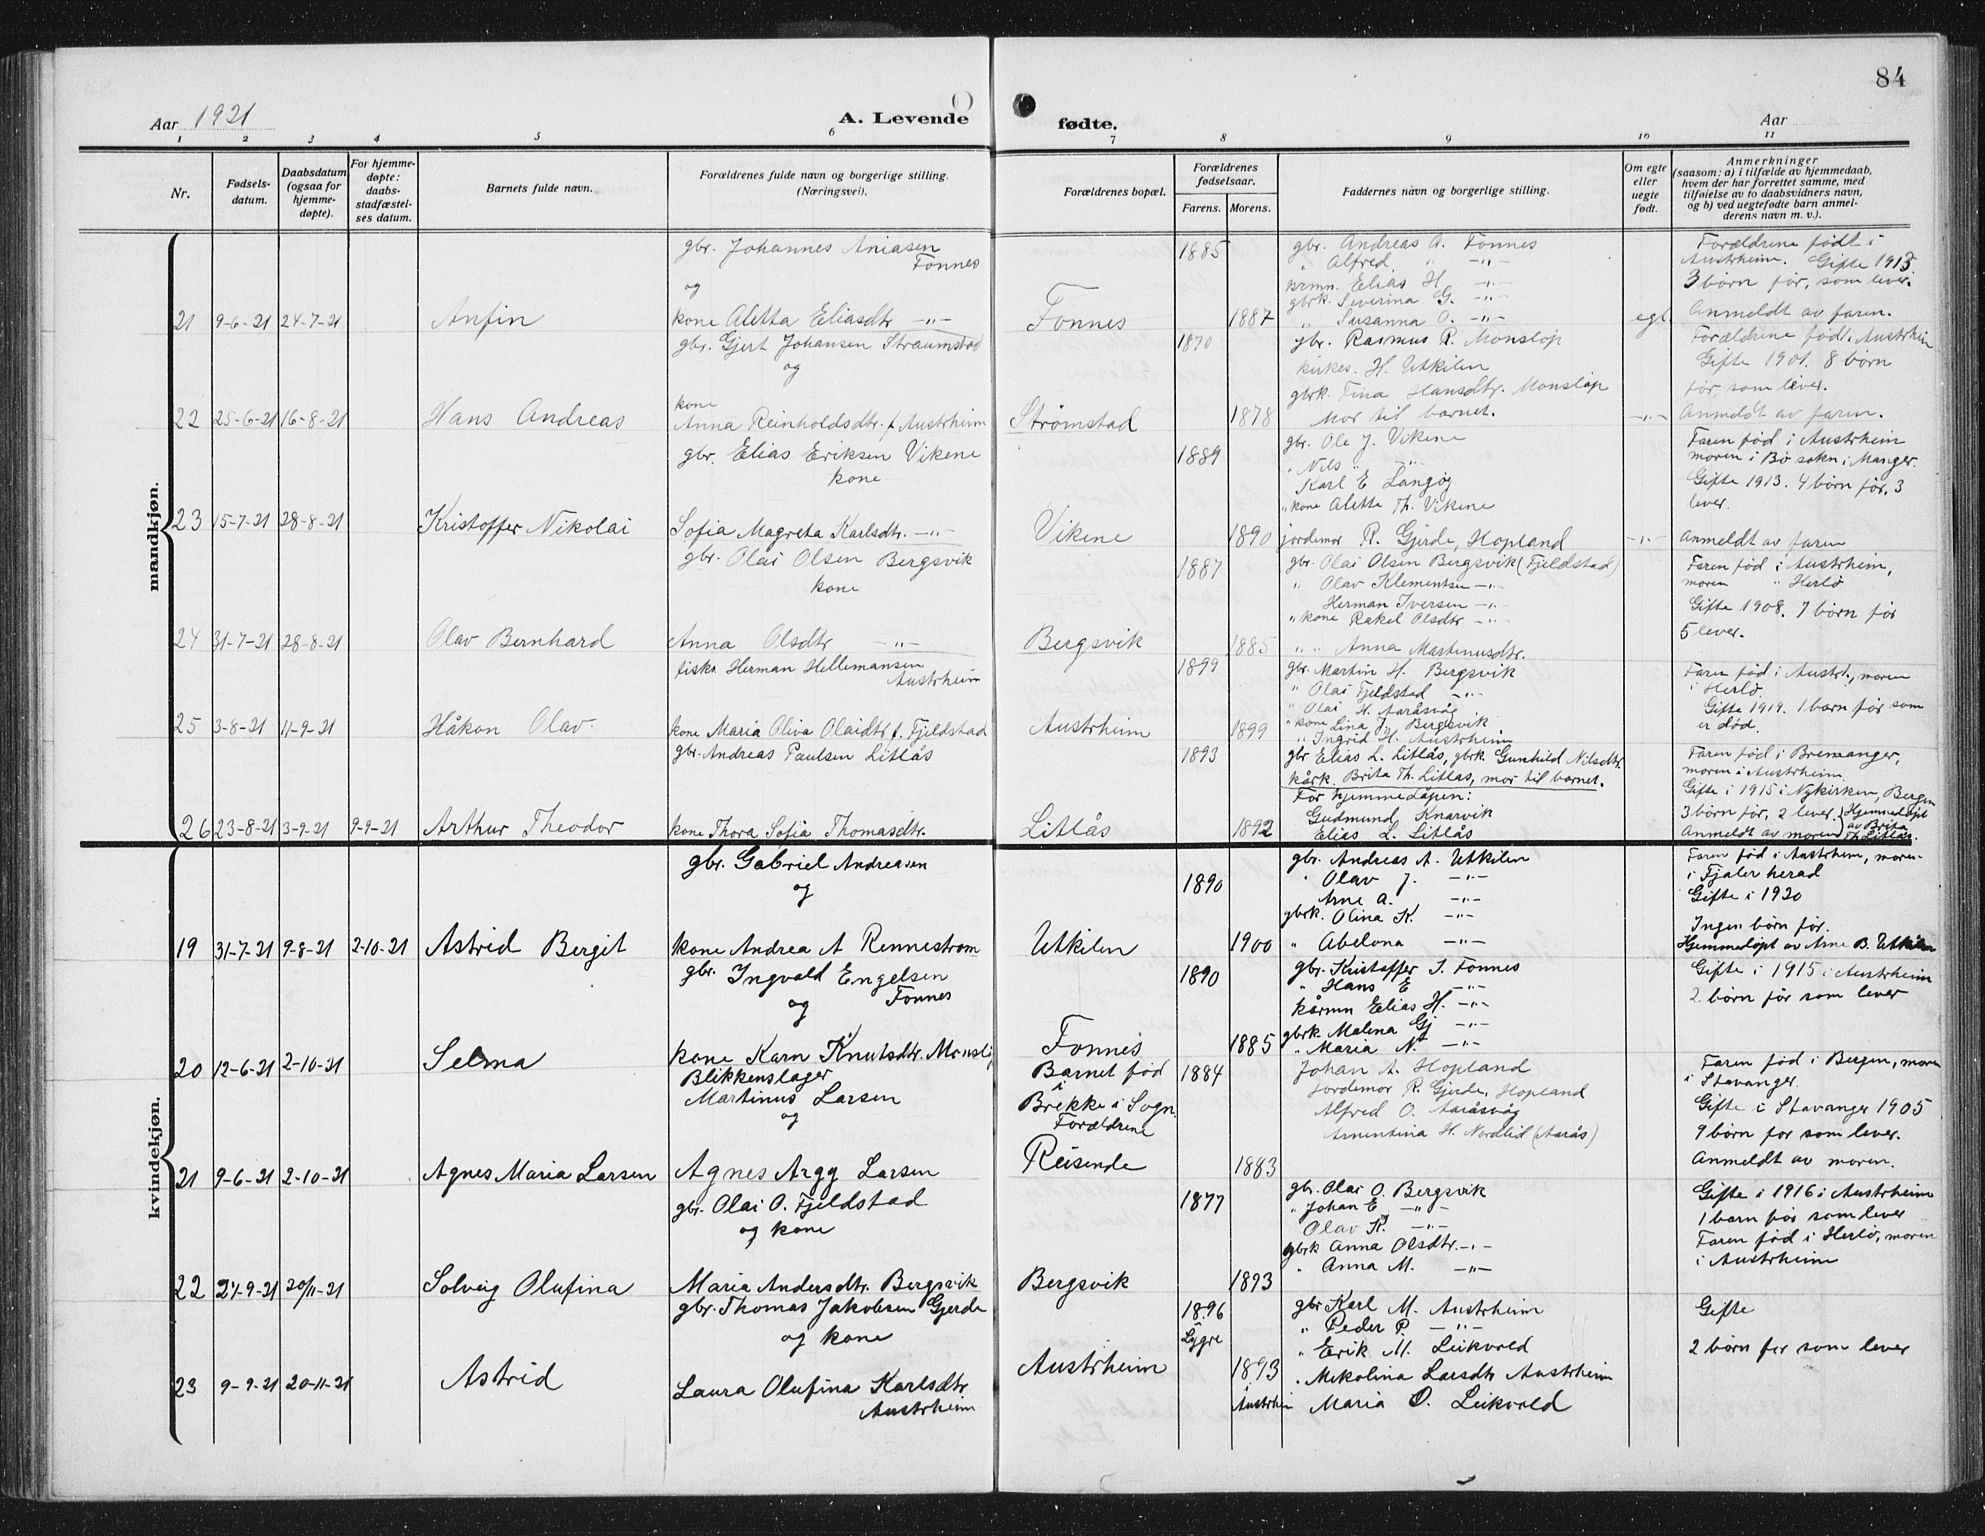 84
Aar 1921
A. Levende
fødte.
Aar
1 2 3 4 5 6 7 8 9 10 11
Nr.
Fødsels-
datum.
Daabsdatum
(ogsaa for
hjemme-
døpte).
For hjemme-
døpte:
daabs-
stadfæstel-
ses datum.
Barnets fulde navn.
Forældrenes fulde navn og borgerlige stilling.
(Næringsvei).
Forældrenes bopæl.
Forældrenes
fødselsaar.
Farens. Morens.
Faddernes navn og borgerlige stilling.
Om egte
eller
uegte
født.
Anmerkninger
(saasom: a) i tilfælde av hjemmedaab,
hvem der har forrettet samme, med
tilføielse av to daabsvidners navn,
og b) ved uegtefødte barn anmel-
derens navn m. v.).
mandkjøn.
21 9-6-21 24-7-21
Anfin
gbr. Johannes Aniasen
Fonnes
og
kone Aletta Eliasdtr -"-
Fonnes
1885
1887
gbr. Andreas A. Fonnes
" Alfred " -"-
krmn. Elias H. -"-
gbrk. Severina G. -"-
" Susanna O. -"-
egt.
Forældrene født i
Austrheim. Gifte 1913.
3 børn før, som lever.
Anmeldt av faren.
22 25-6-21 16-8-21
Hans Andreas
gbr. Gjert Johansen Straumstad
og
kone
Anna Reinholdsdtr. f. Austrheim
Strømstad
1870
1878
gbr. Rasmus R. Monsløp
kirkes. H. Utkilen
gbrk. Fina Hansdtr. Monsløp
Mor til barnet.
-"-
Forældrene født i Austrheim
Gifte 1901. 8 børn
før, som lever.
Anmeldt av faren.
23 15-7-21 28-8-21
Kristoffer Nikolai
gbr. Elias Eriksen Vikene
kone
Sofia Magreta Karlsdtr. -"-
Vikene
1889
1890
gbr. Ole J. Vikene
" Nils " -"-
Karl E Langøy
" kone Alette Th. Vikene
jordemor R. Gjerde, Hopland
-"-
Faren fød i Austrheim
moren i Bø sokn i Manger.
Gifte 1913. 4 børn før, 3
lever.
Anmeldt av faren
24 31-7-21 28-8-21
Olav Bernhard
gbr. Olai Olsen Bergsvik
kone
Anna Olsdtr -"-
Bergsvik
1887
1885
gbr. Olai Olsen Bergsvik (Fjeldstad)
" Olav Klementsen -"-
Herman Iversen -"-
" kone Rakel Olsdtr -"-
" " Anna Martinusdtr.
Faren fød i Austrheim,
moren " Herlø
Gifte 1908. 7 børn før
5 lever.
25 3-8-21 11-9-21
Håkon Olav.
fiskr. Herman Hellemansen
Austrheim
kone Maria Oliva Olaidtr f. Fjeldstad
Austrheim
1899
1899
gbr. Martin H. Bergsvik
" Olai Fjeldstad -"-
" Olai H. Aaråsvåg
" kone Lina J. Bergsvik
" Ingrid H. Austrheim
Faren fød i Austrh., moren
i Herlø.
Gifte 1919. 1 barn før som
er død.
26 23-8-21 3-9-21 9-9-21
Arthur Theodor
gbr. Andreas Paulsen Litlås
kone Thora Sofia Thomasdtr.
Litlås
1893
1892
gbr Elias L. Litlås, gbrk Gunhild Nilsdtr.
kårk. Brita Th. Litlås, mor til barnet.
For hjemmedåpen:
Gudmund Knarvik
Elias L. Litlås
Faren fød i Bremanger,
moren i Austrheim.
Gifte i 1915 i Nykirken, Bergen
3 børn før, 2 lever. Hjemmedøpt
Anmeldt av moren av Brita
Th. Litlås.
kvindekjøn.
19 31-7-21 9-8-21 2-10-21
Astrid Bergit
gbr. Gabriel Andreasen
og
kone Andrea A Rennestrom
Utkilen
1890
1900
gbr. Andreas A. Utkilen
" Olav J. -"-
Arne A. -"-
gbrk. Olina K. -"-
" Abelona -"-
Faren fød i Austrheim, moren
i Fjaler herad
Gifte i 1920
Ingen børn før.
Hjemmedøpt av Arne B. Utkilen
20 12-6-21 2-10-21
Selma
gbr. Ingvald Engelsen
og Fonnes
kone Karn Knutsdtr. Monsløp
Fonnes
1890
1885
gbr. Kristoffer I. Fonnes
" Hans E -"-
kårmn Elias H. -"-
gbrk Malena Gj -"-
" Maria N. -"-
Gifte i 1915 i Austrheim
2 børn før som lever
21 9-6-21 2-10-21
Agnes Maria Larsen
Blikkenslager
Martinus Larsen
og
Agnes Argg Larsen
Barnet fød
i
Brekke i Sogn.
Forældrene
Reisende
1884
1883
Johan A. Hopland
Jordemor R. Gjerde, Hopland
Alfred O. Aaråsvåg
Arnentina H. Nordlid (Aarås)
Faren fød i Bergen, moren
i Stavanger.
Gifte i Stavanger 1905
9 børn før som lever.
Anmeldt av moren.
22 27-9-21 20/11-21
Solveig Olufina
gbr. Olai O. Fjeldstad
og kone
Maria Andersdtr. Bergsvik
Bergsvik
1877
1893
gbr. Olai O. Bergsvik
" Johan E -"-
Olav K. -"-
gbrk Anna Olsdtr. -"-
" Anna M. -"-
Gifte i 1916 i Austrheim
1 barn før som lever
Faren fød i Herlø, moren
i Austrheim
23 9-9-21 20-11-21
Astrid
gbr. Thomas Jakobsen Gjerde
og kone
Laura Olufina Karlsdtr.
Austrheim
Austrheim
1896
Lygre
1893
i Austrheim
gbr Karl M. Austrheim
" Peder P. -"-
" Erik M. Leikvold
" Mikolina Larsdtr Austrheim
Maria O. Leikvold
Gifte
2 børn før som lever